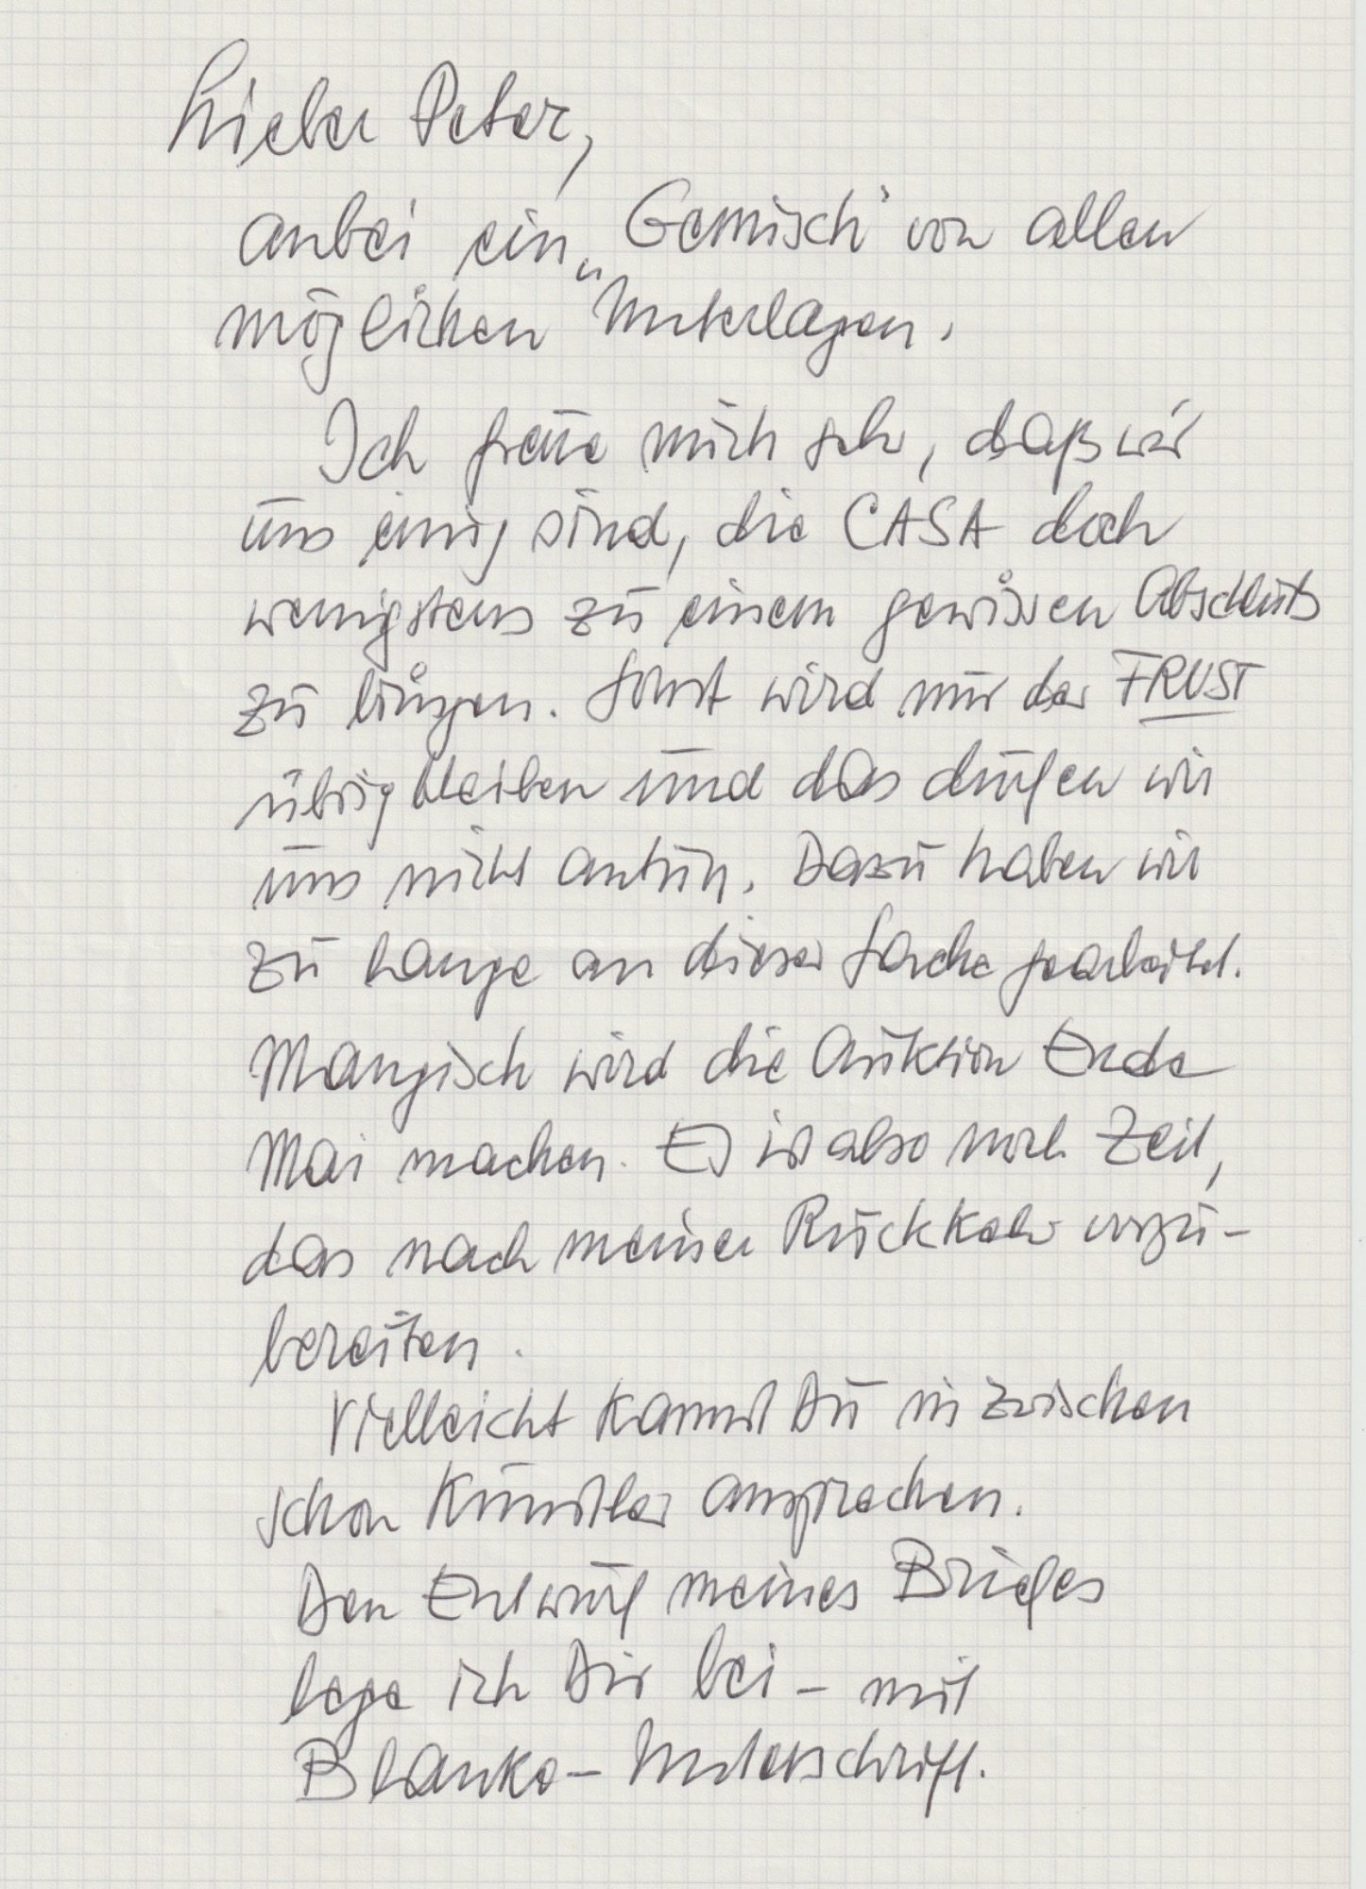 Lieber Peter,
anbei ein „Gemisch" von allen
möglichen Unterlagen.
Ich freue mich sehr, daß wir
uns einig sind, die CASA doch
wenigstens zu einem gewissen Abschluß
zu bringen. Sonst wird nur der FRUST
übrig bleiben und das dürfen wir
uns nicht antun. Dazu haben wir
zu lange an dieser Sache gearbeitet.
Mangisch wird die Auktion Ende
Mai machen. Es ist also noch Zeit,
das nach meiner Rückkehr vorzu-
bereiten.
Vielleicht kannst Du inzwischen
schon Künstler ansprechen.
Den Entwurf meines Briefes
lege ich Dir bei – mit
Blanko-Unterschrift.